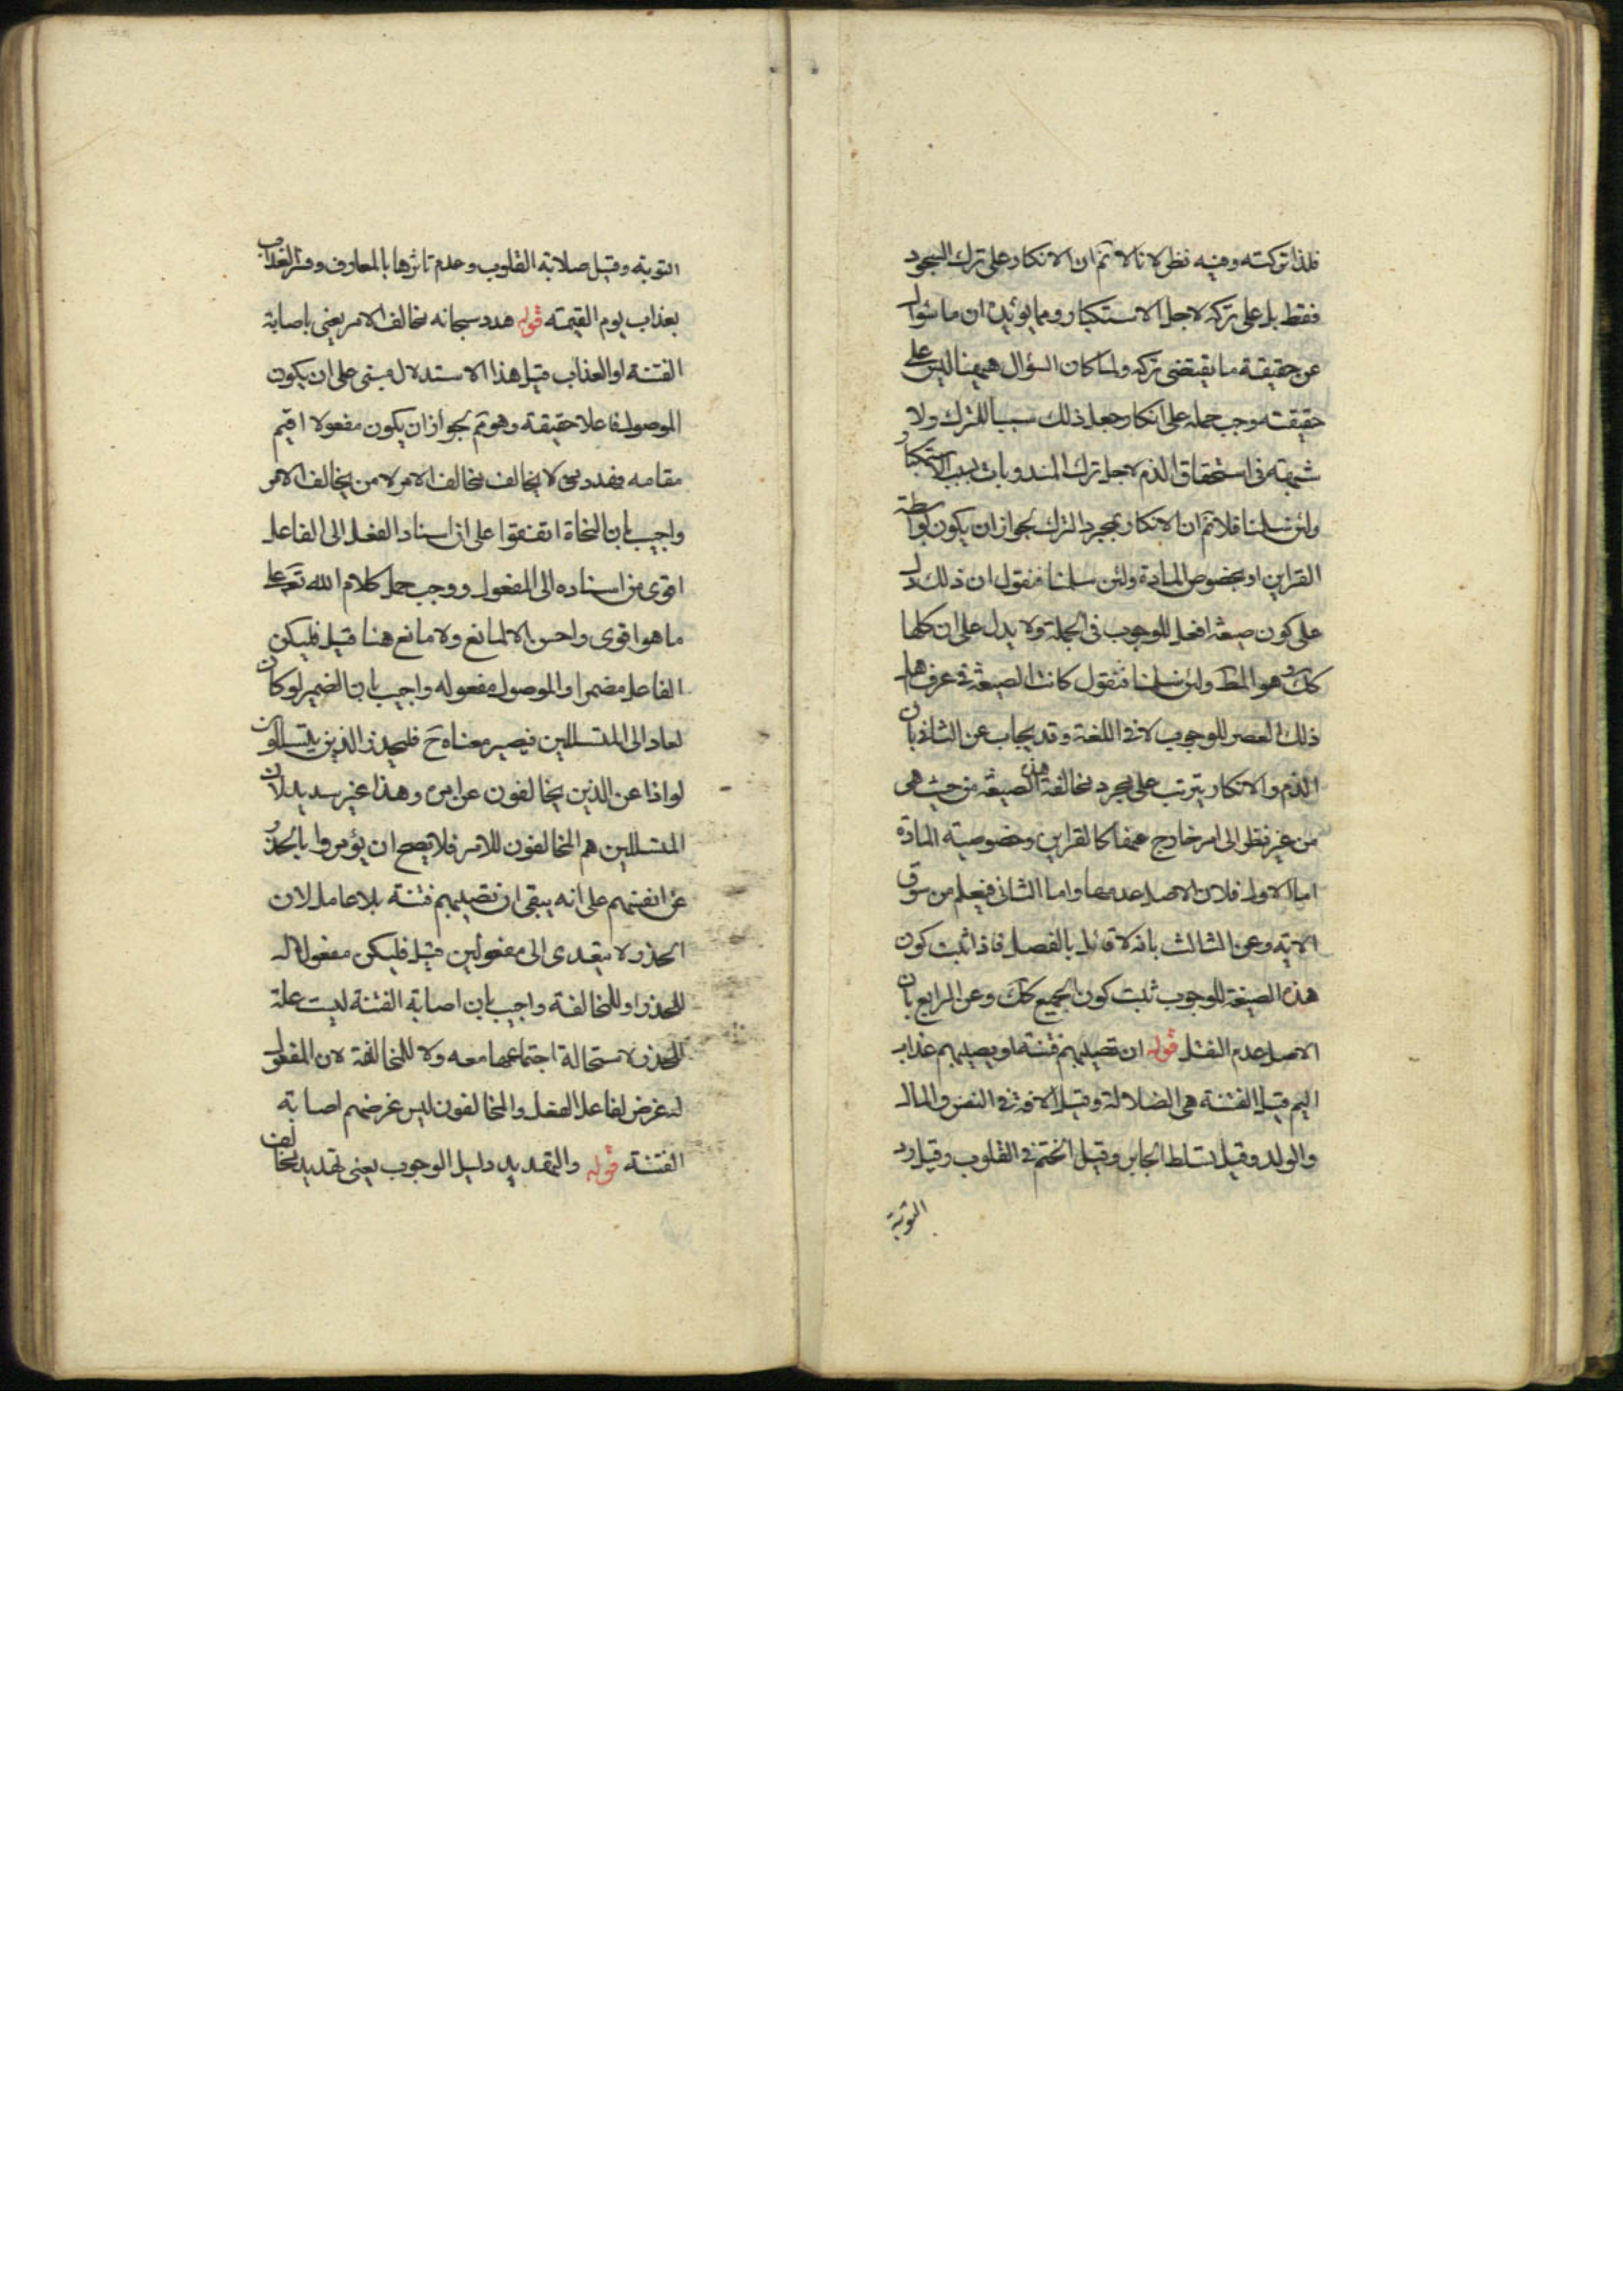 فلذا تركته وفيه نظر لانا لا نم ان الانكار على ترك السجود
فقط بل على تركه لاجل الاستكبار ومما يؤيده ان ما سؤال
عن حقيقة ما يقتضى تركه ولما كان السؤال ههنا ليس على
حقيقته وجب حمله على انكار جعل ذلك سببا للترك ولا
شبهة فى استحقاق الذم لاجل ترك المندوبات بسبب الاستكبار
ولئن سلمنا فلا نم ان الانكار بمجرد الترك لجواز ان يكون بواسطة
القراين او بخصوص المادة ولئن سلمنا فنقول ان ذلك دل
على كون صيغة افعل للوجوب فى الجملة ولا يدل على ان كلها
كك وهو المط ولئن سلمنا فنقول كانت الصيغة فى عرف اهل
ذلك العصر للوجوب لا فى اللغة وقد يجاب عن الثانى بان
الذم والانكار يترتب على مجرد مخالفة هذه الصيغة من حيث هى
من غير نظر الى امر خارج عنها كالقراين وخصوصية المادة
اما الاول فلان الاصل عدمها واما الثانى فيعلم من سوق
الاية وعن الثالث بانه لا قائل بالفصل فاذا ثبت كون
هذه الصيغة للوجوب ثبت كون الجميع كك وعن الرابع بان
الاصل عدم النقل قوله ان تصيبهم فتنة او يصيبهم عذاب
اليم قيل الفتنة هى الضلالة وقيل الافة فى النفس والمال
والولد وقيل تسلط الجابر وقيل الختم فى القلوب وقيل رد
التوبة
التوبة وقيل صلابة القلوب وعدم تاثرها بالمعارف وفسر العذاب
بعذاب يوم القيمة قوله هدد سبحانه مخالف الامر يعنى باصابة
الفتنة او العذاب قيل هذا الاستدلال مبنى على ان يكون
الموصول فاعلا حقيقة وهو نم لجواز ان يكون مفعولا اقيم
مقامه فهدد من لا يخالف مخالف الامر لا من يخالف الامر
واجيب بان النحاة اتفقوا على ان اسناد الفعل الى الفاعل
اقوى من اسناده الى المفعول ووجب حمل كلام الله تع على
ما هو اقوى واحسن الا لمانع ولا مانع هنا قيل فليكن
الفاعل مضمرا والموصول مفعوله واجيب بان الضمير لو كان
لعاد الى المتسللين فيصير معناه ح فليحذر الذين يتسللون
لواذا عن الذين يخالفون عن امره وهذا غير سديد لان
المتسللين هم المخالفون للامر فلا يصح ان يؤمروا بالحذر
عن انفسهم على انه يبقى ان تصيبهم فتنة بلا عامل لان
الحذر لا يتعدى الى مفعولين قيل فليكن مفعولا له
للحذر او للمخالفة واجيب بان اصابة الفتنة ليست علة
للحذر لاستحالة اجتماعها معه ولا للمخالفة لان المفعول
له غرض لفاعل الفعل والمخالفون ليس غرضهم اصابة
الفتنة قوله والتهديد دليل الوجوب يعنى تهديد مخالف